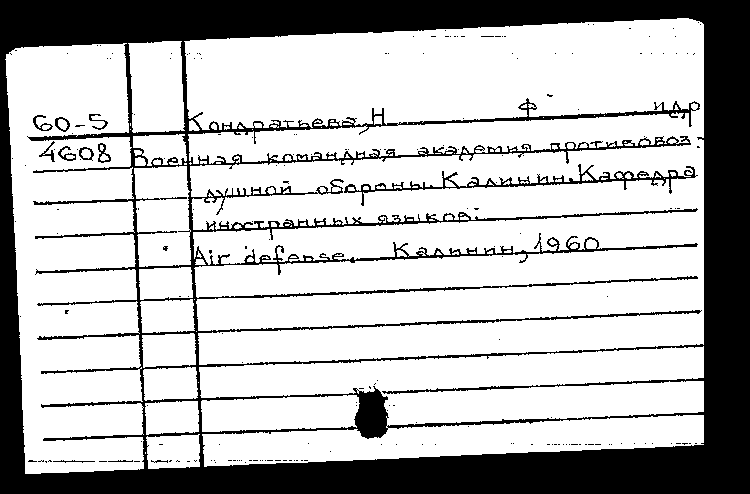 60-5 Кондратьева, Н Ф и др
4608 Военная командная академия противовоз-
душной обороны. Калинин. Кафедра
иностранных языков:
Air defense. Калинин, 1960